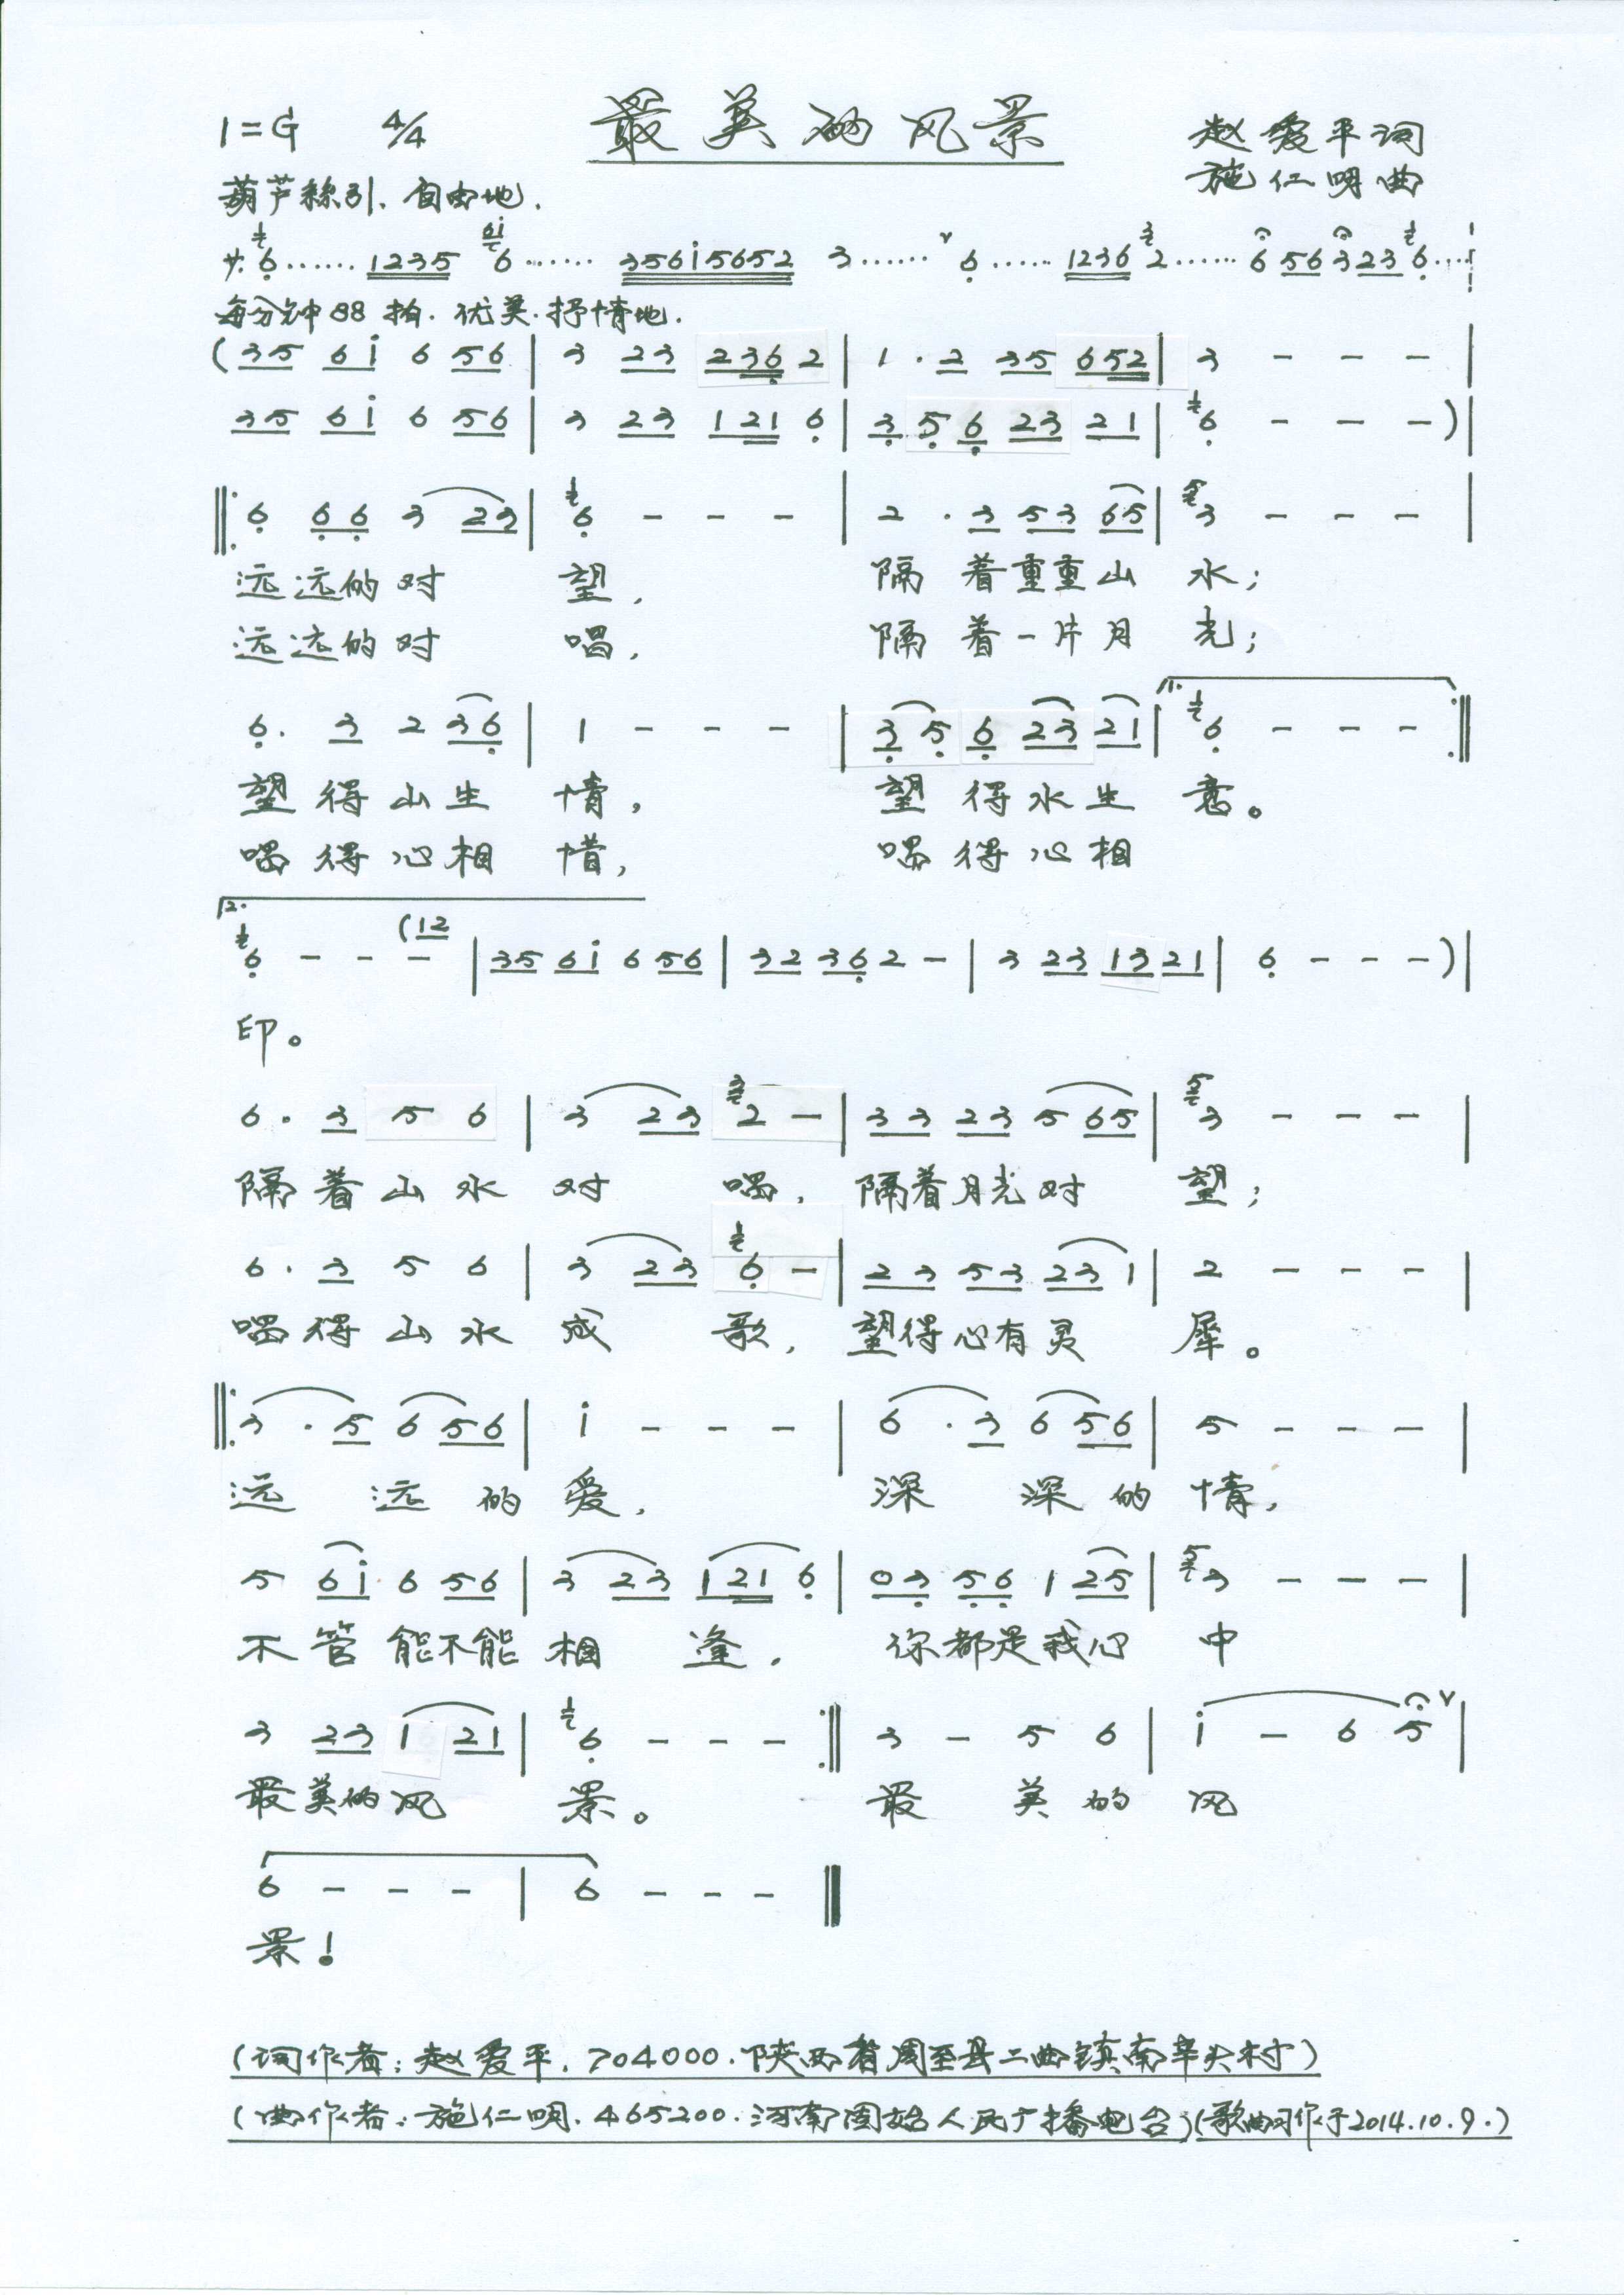 最美的风景
1=G 4/4 赵爱平词
施仁明曲
葫芦丝引.自由地.
サ 6…… 1235 6…… 356i5652 3…… 6…… 1236 2…… 6 56 3 23 6……
每分钟88拍.优美.抒情地.
(35 6i 6 56 | 3 23 236 2 | 1·2 35 652 | 3 - - - |
35 6i 6 56 | 3 23 121 6 | 3 5 6 23 21 | 6 - - -)|
‖: 6 66 3 23 | 6 - - - | 2·3 53 65 | 3 - - - |
远远的对 望, 隔着重重山 水;
远远的对 唱, 隔着一片月 光;
6·3 2 36 | 1 - - - | 3 5 6 23 21 | 1. 6 - - - :‖
望得山生 情, 望得水生 意。
唱得心相 惜, 唱得心相
2. 6 - - - (12 | 35 6i 6 56 | 32 36 2 - | 3 23 13 21 | 6 - - -)|
印。
6·3 5 6 | 3 23 2 - | 33 23 5 65 | 3 - - - |
隔着山水 对 唱, 隔着月光对 望;
6·3 5 6 | 3 23 6 - | 23 53 23 1 | 2 - - - |
唱得山水 成 歌, 望得心有灵 犀。
‖: 3·5 6 56 | i - - - | 6·3 6 56 | 5 - - - |
远 远的 爱, 深 深的 情,
5 6i 6 56 | 3 23 121 6 | 03 56 1 25 | 3 - - - |
不管能不能 相 逢, 你都是我心 中
3 23 1 21 | 6 - - - :‖ 3 - 5 6 | i - 6 5 |
最美的风 景。 最 美的 风
6 - - - | 6 - - - ‖
景!
(词作者:赵爱平.704000.陕西省周至县二曲镇南辛头村)
(曲作者:施仁明.465200.河南固始人民广播电台)(歌曲习作于2014.10.9.)